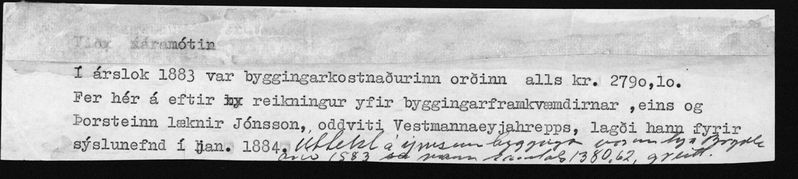 Við áramótin
Í árslok 1883 var byggingarkostnaðurinn orðinn alls kr. 2790,10.
Fer hér á eftir reikningur yfir byggingarframkvæmdirnar ,eins og
Þorsteinn læknir Jónsson, oddviti Vestmannaeyjahrepps, lagði hann fyrir
sýslunefnd í jan. 1884. Úttekt á ýmsum bygginga vörum hjá Bryde
1883 nam samtals 1380,62, greitt.